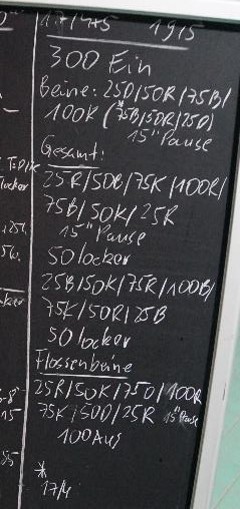 17/4/5 1915
300 Ein
Beine: 25D/50R/75B/
100K (*75B/50R/25D)
15" Pause
Gesamt:
25R/50B/75K/100R/
75B/50K/25R
15" Pause
50 locker
25B/50K/75R/100B/
75K/50R/25B
50 locker
Flossenbeine
25R/50K/75D/100R
75K/50D/25R 15" Pause
100 Aus
*
17/4